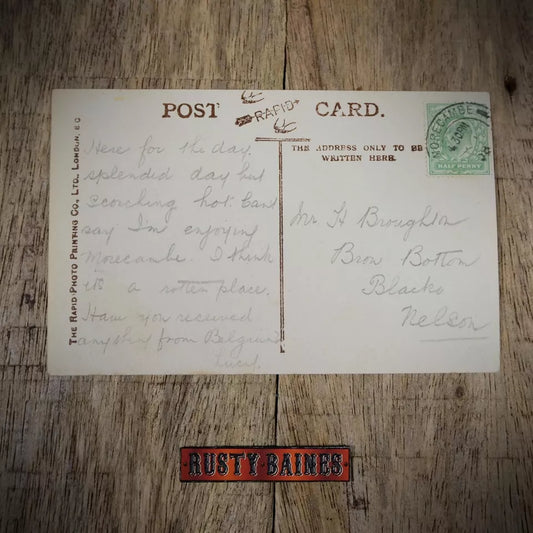 POST CARD.
RAPID
THE ADDRESS ONLY TO BE
WRITTEN HERE.
MORECAMBE
HALF PENNY
THE RAPID PHOTO PRINTING CO., LTD., LONDON, E.C
Here for the day.
splendid day but
scorching hot. Cant
say I'm enjoying
Morecambe. I think
its a rotten place.
Have you received
anything from Belgium?
Lucy.
Mr. H Broughton
Brow Bottom
Blacko
Nelson
RUSTY·BAINES